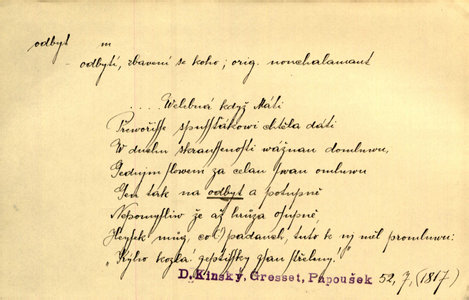 odbyt m
- odbytí, zbavení se koho; orig. nonchalamant
.... Welebná když Máti
Přewořisse spussťákowi chtěla dáti
W duchu skraussenosti wážnau domluwu,
Gedným slowem za celau swau omluwu
Gen tak na odbyt a potupně
Nepomysliw že až hrůza osupně,
Heyſek můg, co(!) padauch, tuto k nj měl promluwu:
"Kýho kozla! geptissky gsau střeleny!"
D. Kinský, Gresset, Papoušek 52, 7, (1817)